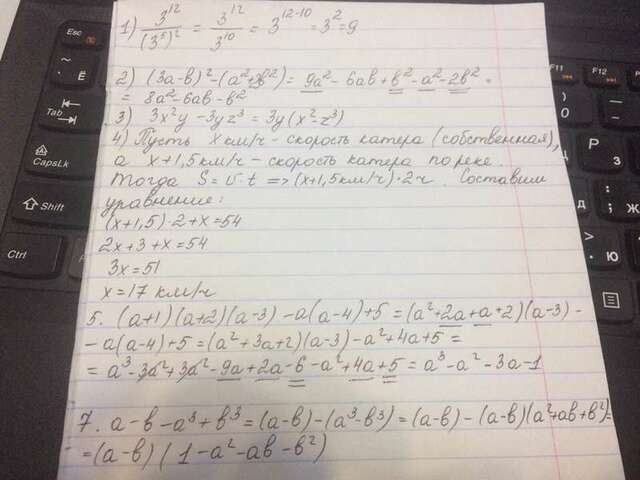 1) 3^12/(3^5)^2 = 3^12/3^10 = 3^12-10 = 3^2 = 9
2) (3a-в)^2-(a^2+2в^2) = 9a^2-6aв+в^2-a^2-2в^2 =
= 8a^2-6aв-в^2
3) 3x^2y-3yz^3 = 3y(x^2-z^3)
4) Пусть x км/ч - скорость катера (собственная),
а x+1,5 км/ч - скорость катера по реке.
Тогда S = v·t => (x+1,5 км/ч)·2ч. Составим
уравнение:
(x+1,5)·2+x=54
2x+3+x=54
3x=51
x=17 км/ч
5. (a+1)(a+2)(a-3)-a(a-4)+5 = (a^2+2a+a+2)(a-3)-
-a(a-4)+5 = (a^2+3a+2)(a-3)-a^2+4a+5 =
= a^3-3a^2+3a^2-9a+2a-6-a^2+4a+5 = a^3-a^2-3a-1
7. a-в-a^3+в^3 = (a-в)-(a^3-в^3) = (a-в)-(a-в)(a^2+aв+в^2)=
= (a-в)(1-a^2-aв-в^2)
Esc
Tab
CapsLk
Shift
Ctrl
F11
F12
Д
Ж
Ю